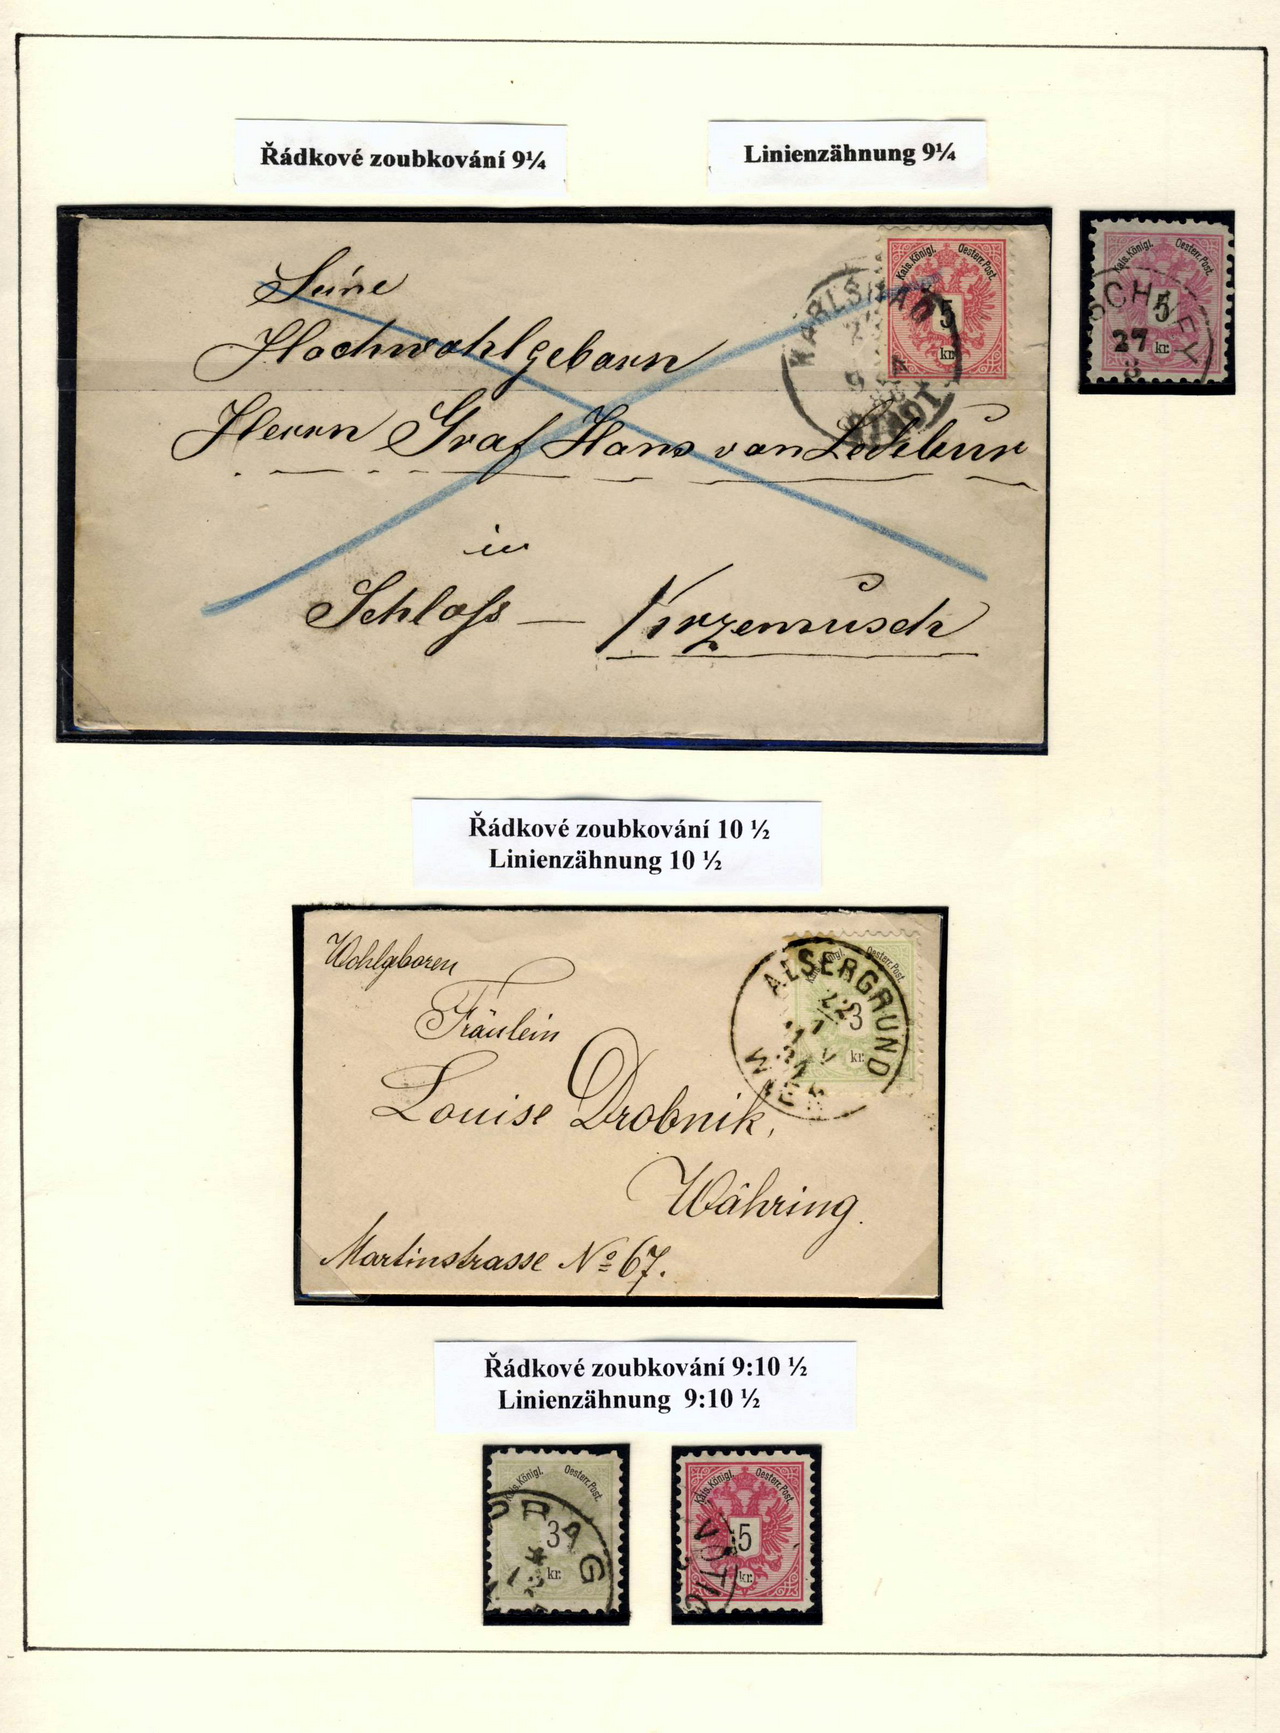 Řádkové zoubkování 9¼
Linienzähnung 9¼
Kais. Königl. Oesterr. Post.
5
kr.
KARLSBAD
STADT
Kais. Königl. Oesterr. Post.
5
kr.
27
8
Seine
Hochwohlgeborn
Herrn Graf Hans von Ledebur
in
Schloss — Krzemusch
Řádkové zoubkování 10 ½
Linienzähnung 10 ½
Kais. Königl. Oesterr. Post.
3
kr.
ALSERGRUND
WIEN
22
Wohlgeboren
Fräulein
Louise Drobnik,
Währing.
Martinstrasse No 67.
Řádkové zoubkování 9:10 ½
Linienzähnung 9:10 ½
Kais. Königl. Oesterr. Post.
3
kr.
PRAG
Kais. Königl. Oesterr. Post.
5
kr.